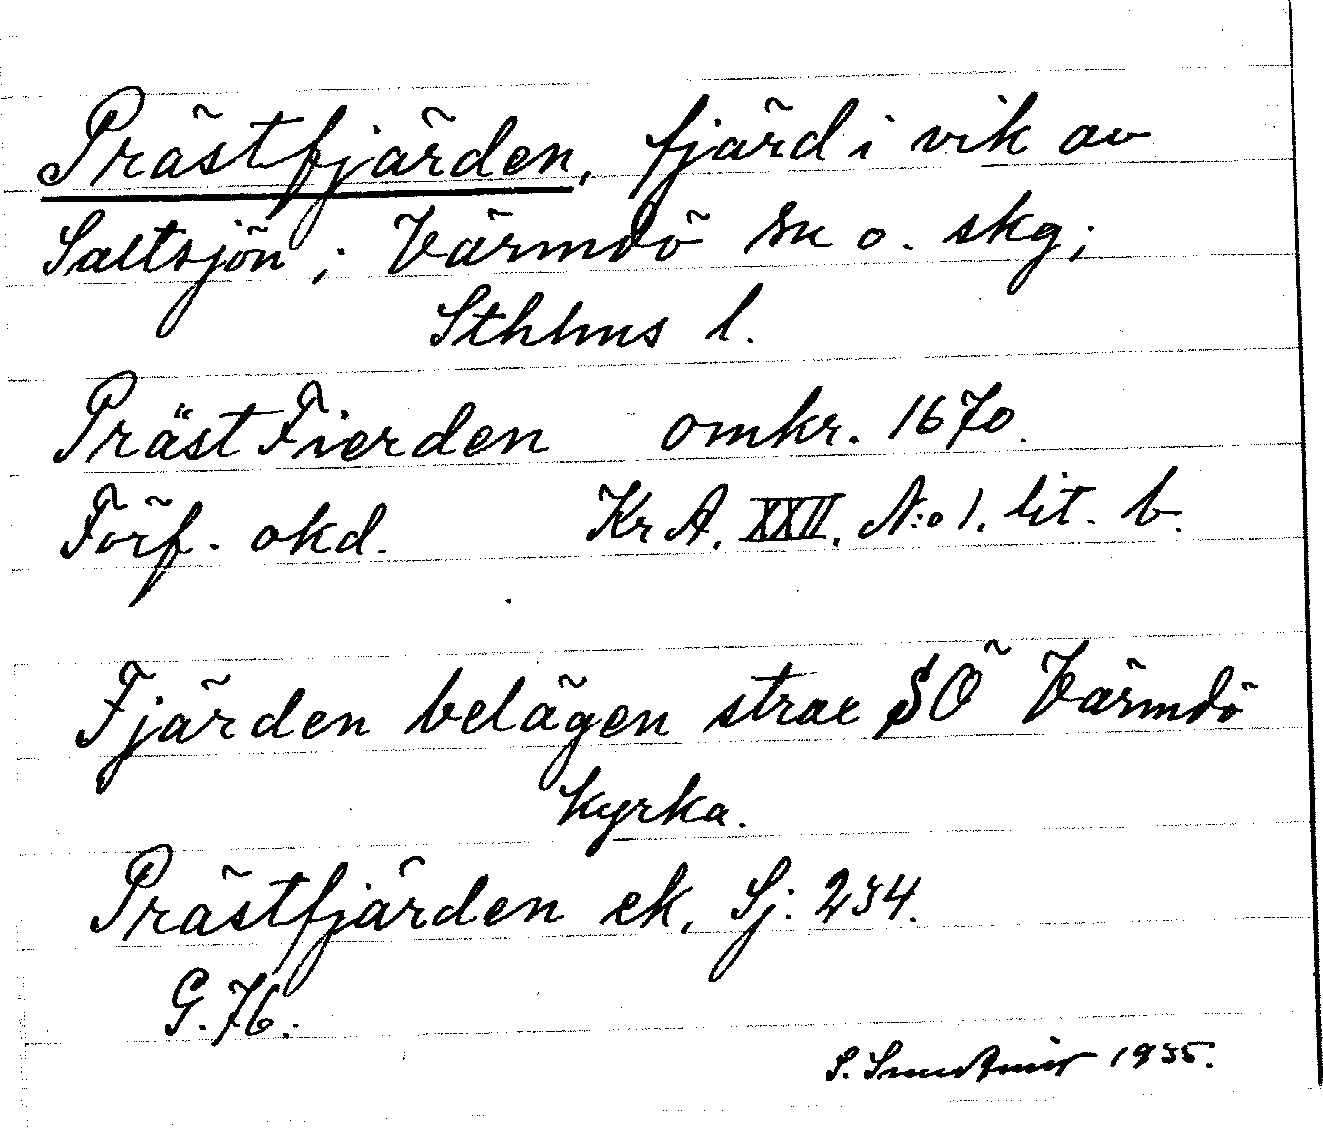 Prästfjärden, fjärd i vik av
Saltsjön; Värmdö sn o. skg;
Sthlms l.
Präst Fierden omkr. 1670.
Förf. okd. Kr A. XXII. N:o 1. lit. b.
Fjärden belägen strax SÖ Värmdö
kyrka.
Prästfjärden ek. Sj. 234.
G. 76.
S. 1935.